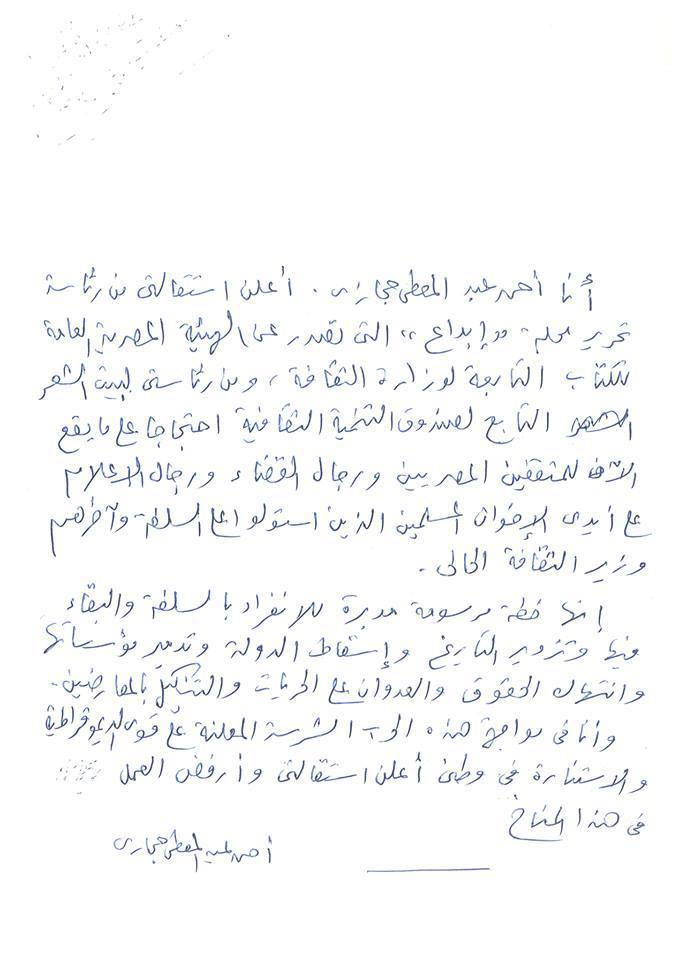 أنا أحمد عبد المعطى حجازى . أعلن استقالتى من رئاسة
تحرير مجلة " إبداع " التى تصدر عن الهيئة المصرية العامة
للكتاب التابعة لوزارة الثقافة ، ومن رئاستى لبيت الشعر
التابع لصندوق التنمية الثقافية احتجاجا على ما يقع
الآن للمثقفين المصريين ورجال القضاء ورجال الاعلام
على أيدى الإخوان المسلمين الذين استولوا على السلطة وآخرهم
وزير الثقافة الحالى .
إنها خطة مرسومة مدبرة للانفراد بالسلطة والبقاء
فيها وتزوير التاريخ وإسقاط الدولة وتدمير مؤسساتها
وانتهاك الحقوق والعدوان على الحريات والتنكيل بالمعارضين .
وأنا فى مواجهة هذه الحرب الشرسة المعلنة على قوى الديموقراطية
والاستنارة فى وطنى أعلن استقالتى وأرفض العمل
فى هذا المناخ
أحمد عبد المعطى حجازى